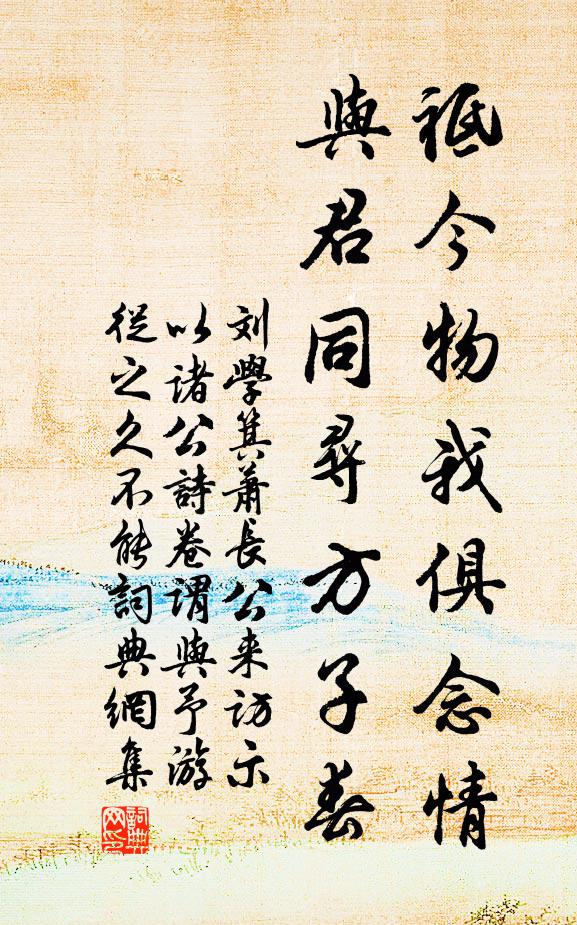 祗今物我俱念情
與君同尋方子春
刘學箕蕭長公来訪示
以諸公詩卷謂與予游
從之久不能詞典網集
詞典网印